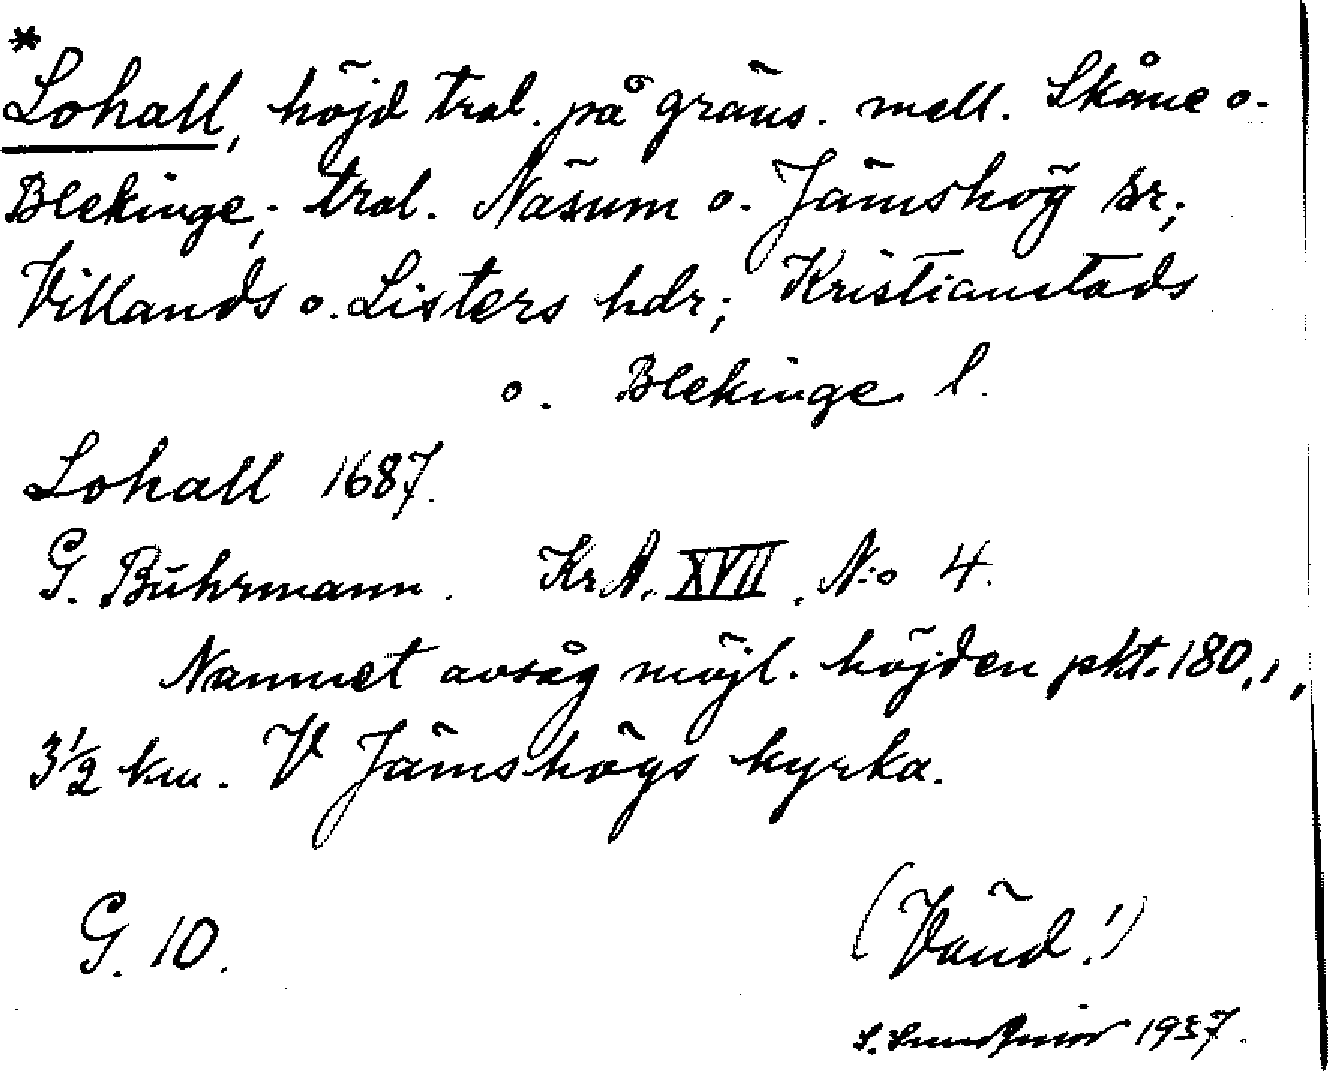 *
Lohall, höjd trol. på gräns. mell. Skåne o.
Blekinge; trol. Näsum o. Jämshög sr;
Villands o. Listers hdr; Kristianstads
o. Blekinge l.
Lohall 1687.
G. Buhrmann. KrA. XVII. N:o 4.
Namnet avsåg möjl. höjden pkt. 180,1,
3½ km. V Jämshögs kyrka.
G. 10.
(Vänd!)
S. 1937.